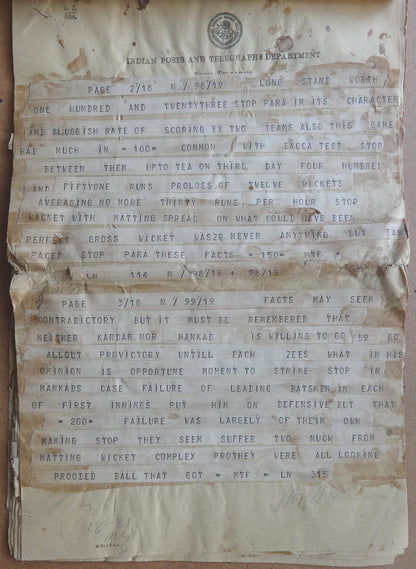 C. 2
INDIAN POSTS AND TELEGRAPHS DEPARTMENT
PAGE 2/18 N / 98/19 LONG STAND WORTH
ONE HUNDRED AND TWENTYTHREE STOP PARA IN ITS CHARACTER
AND SLUGGISH RATE OF SCORING BY TWO TEAMS ALSO THIS GAME
HAD MUCH IN =100= COMMON WITH DACCA TEST STOP
BETWEEN THEM UPTO TEA ON THIRD DAY FOUR HUNDRED
AND FIFTYONE RUNS PROLOSS OF TWELVE WICKETS
AVERASING NO MORE THIRTY RUNS PER HOUR STOP
WICKET WITH MATTING SPREAD ON WHAT COULD HAVE BEEN
PERFECT GROSS WICKET WASZG NEVER ANYTHING LUT EAS
PACED STOP PARA THESE FACTS =150= MTF =
LN 114 N / 98/18 + 98/19
PAGE 3/18 N / 99/19 FACTS MAY SEEM
CONTRADICTORY BUT IT MUST BE REMEMBERED THAT
NEITHER KARDAR NOR MANKAD IS WILLING TO GO 58 GO
ALLOLT PROVICTORY UNTILL EACH ZEES WHAT IN HIS
OPINION IS OPPORTUNE MOMENT TO STRIKE STOP IN
MANKADS CASE FAILURE OF LEADING BATSMEN IN EACH
OF FIRST INNINGS PUT HIM ON DEFENSIVE BUT THAT
=200= FAILURE WAS LARGELY OF THEIR OWN
MAKING STOP THEY SEEM SUFFER TWO MUCH FROM
MATTING WICKET COMPLEX PROTHEY WERE ALL LOOKING
PROODED BALL THAT GOT = MTF = LN 315